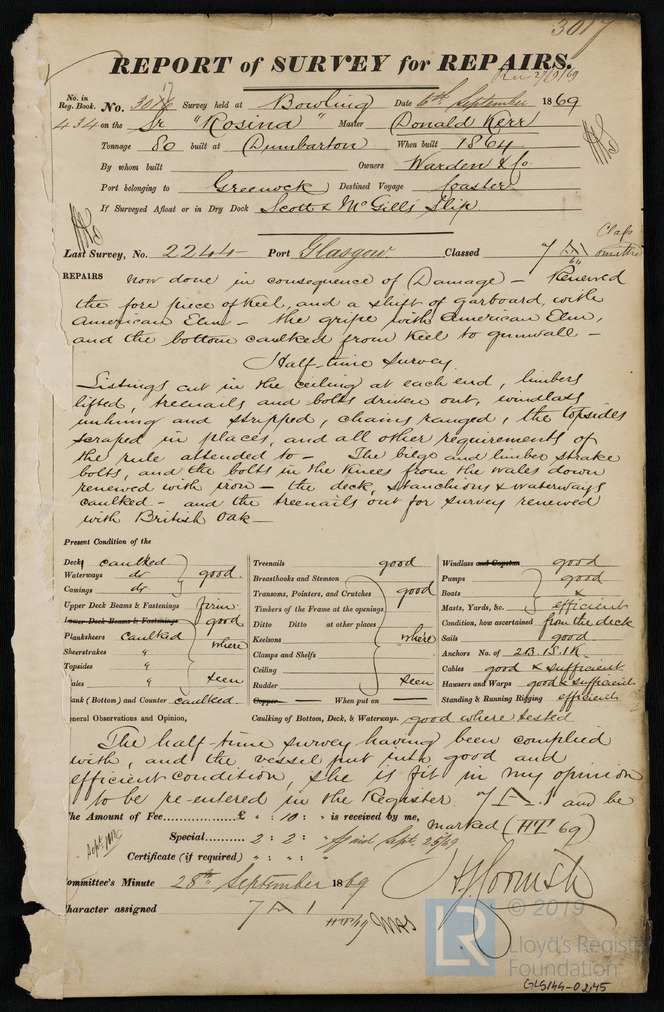 3017
REPORT of SURVEY for REPAIRS.
Rec 27/9/69
No. in Reg. Book. No. 3017 Survey held at Bowling Date 6th September 1869
434 on the Sr "Rosina" Master Donald Kerr
Tonnage 80 built at Dumbarton When built 1864
By whom built Owners Warden & Co.
Port belonging to Greenock Destined Voyage Coaster
If Surveyed Afloat or in Dry Dock Scott & McGills Slip.
Last Survey, No. 2244 Port Glasgow. Classed 7 A 1
64
REPAIRS now done in consequence of Damage - Renewed
the fore piece of keel, and a shift of garboard, with
American Elm - the gripe with American Elm,
and the bottom caulked from keel to gunwall -
Half-time Survey.
Listings cut in the ceiling at each end, limbers
lifted, treenails and bolts driven out, windlass
unhung and stripped, chains ranged, the topsides
scraped in places, and all other requirements of
the rule attended to - The bilge and limber strake
bolts, and the bolts in the knees from the wales down
renewed with iron - the deck, stanchions & waterways
caulked - and the treenails out for survey renewed
with British Oak -
Present Condition of the
Deck caulked
Waterways do
Comings do
good.
Upper Deck Beams & Fastenings firm
Lower Deck Beams & Fastenings
Planksheers caulked
Sheerstrakes "
Topsides "
Wales "
good where seen
Plank (Bottom) and Counter caulked.
Treenails good
Breasthooks and Stemson
Transoms, Pointers, and Crutches
Timbers of the Frame at the openings
Ditto Ditto at other places
Keelsons
Clamps and Shelfs
Ceiling
Rudder
good where seen
Copper When put on
Windlass and Capstan good
Pumps good
Boats &
Masts, Yards, &c. efficient
Condition, how ascertained from the deck
Sails good
Anchors No. of 2B. 1S. 1K.
Cables good & sufficient
Hawsers and Warps good & sufficient
Standing & Running Rigging efficient
General Observations and Opinion, Caulking of Bottom, Deck, & Waterways. good where tested
The half-time survey having been complied
with, and the vessel put into good and
efficient condition, she is fit in my opinion
to be re-entered in the Register 7 A 1 and be
marked (HT 69)
The Amount of Fee £ " : 10 : " is received by me,
Special 2 : 2 : " paid Sept. 25/69
Certificate (if required) " : " : "
Committee's Minute 28th September 1869
Character assigned 7 A 1
HT/69
© 2019
LR
Lloyd's Register
Foundation
GLS144-0245